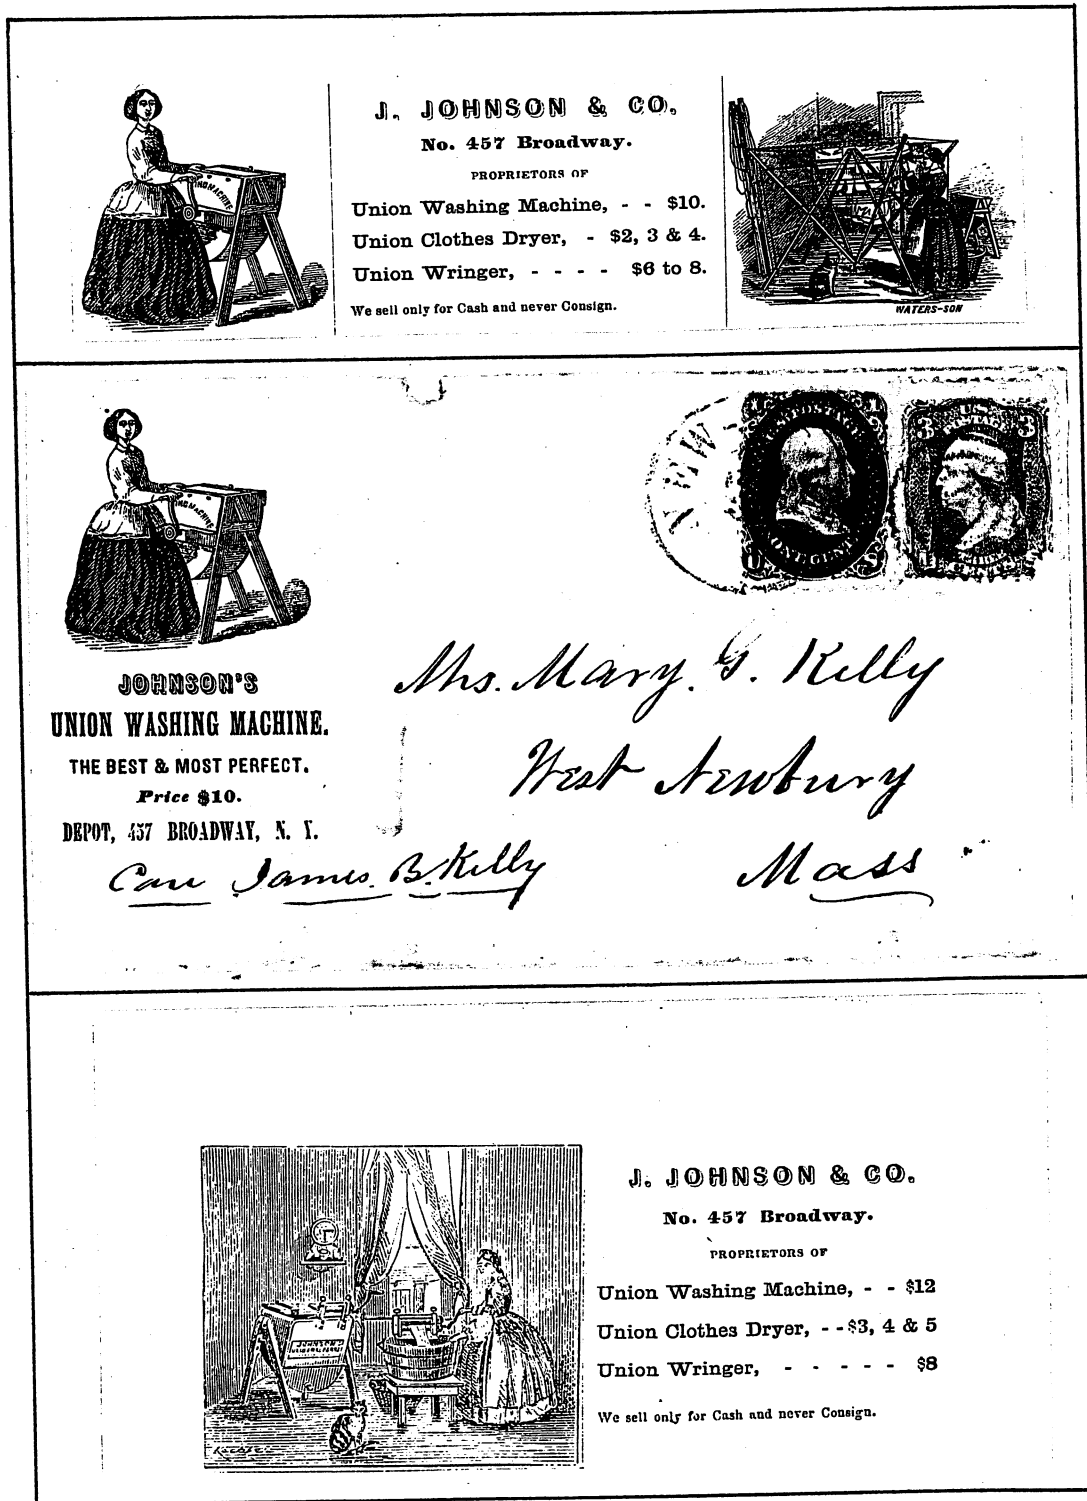 J. JOHNSON & CO.
No. 457 Broadway.
PROPRIETORS OF
Union Washing Machine, - - $10.
Union Clothes Dryer, - $2, 3 & 4.
Union Wringer, - - - - $6 to 8.
We sell only for Cash and never Consign.
WATERS-SON
NEW
U.S. POSTAGE
ONE CENT
3 3
JOHNSON'S
UNION WASHING MACHINE.
THE BEST & MOST PERFECT.
Price $10.
DEPOT, 457 BROADWAY, N. Y.
Mrs. Mary. G. Kelly
West Newbury
Mass
Care James. B. Kelly
J. JOHNSON & CO.
No. 457 Broadway.
PROPRIETORS OF
Union Washing Machine, - - $12
Union Clothes Dryer, - - $3, 4 & 5
Union Wringer, - - - - - $8
We sell only for Cash and never Consign.
JOHNSON'S